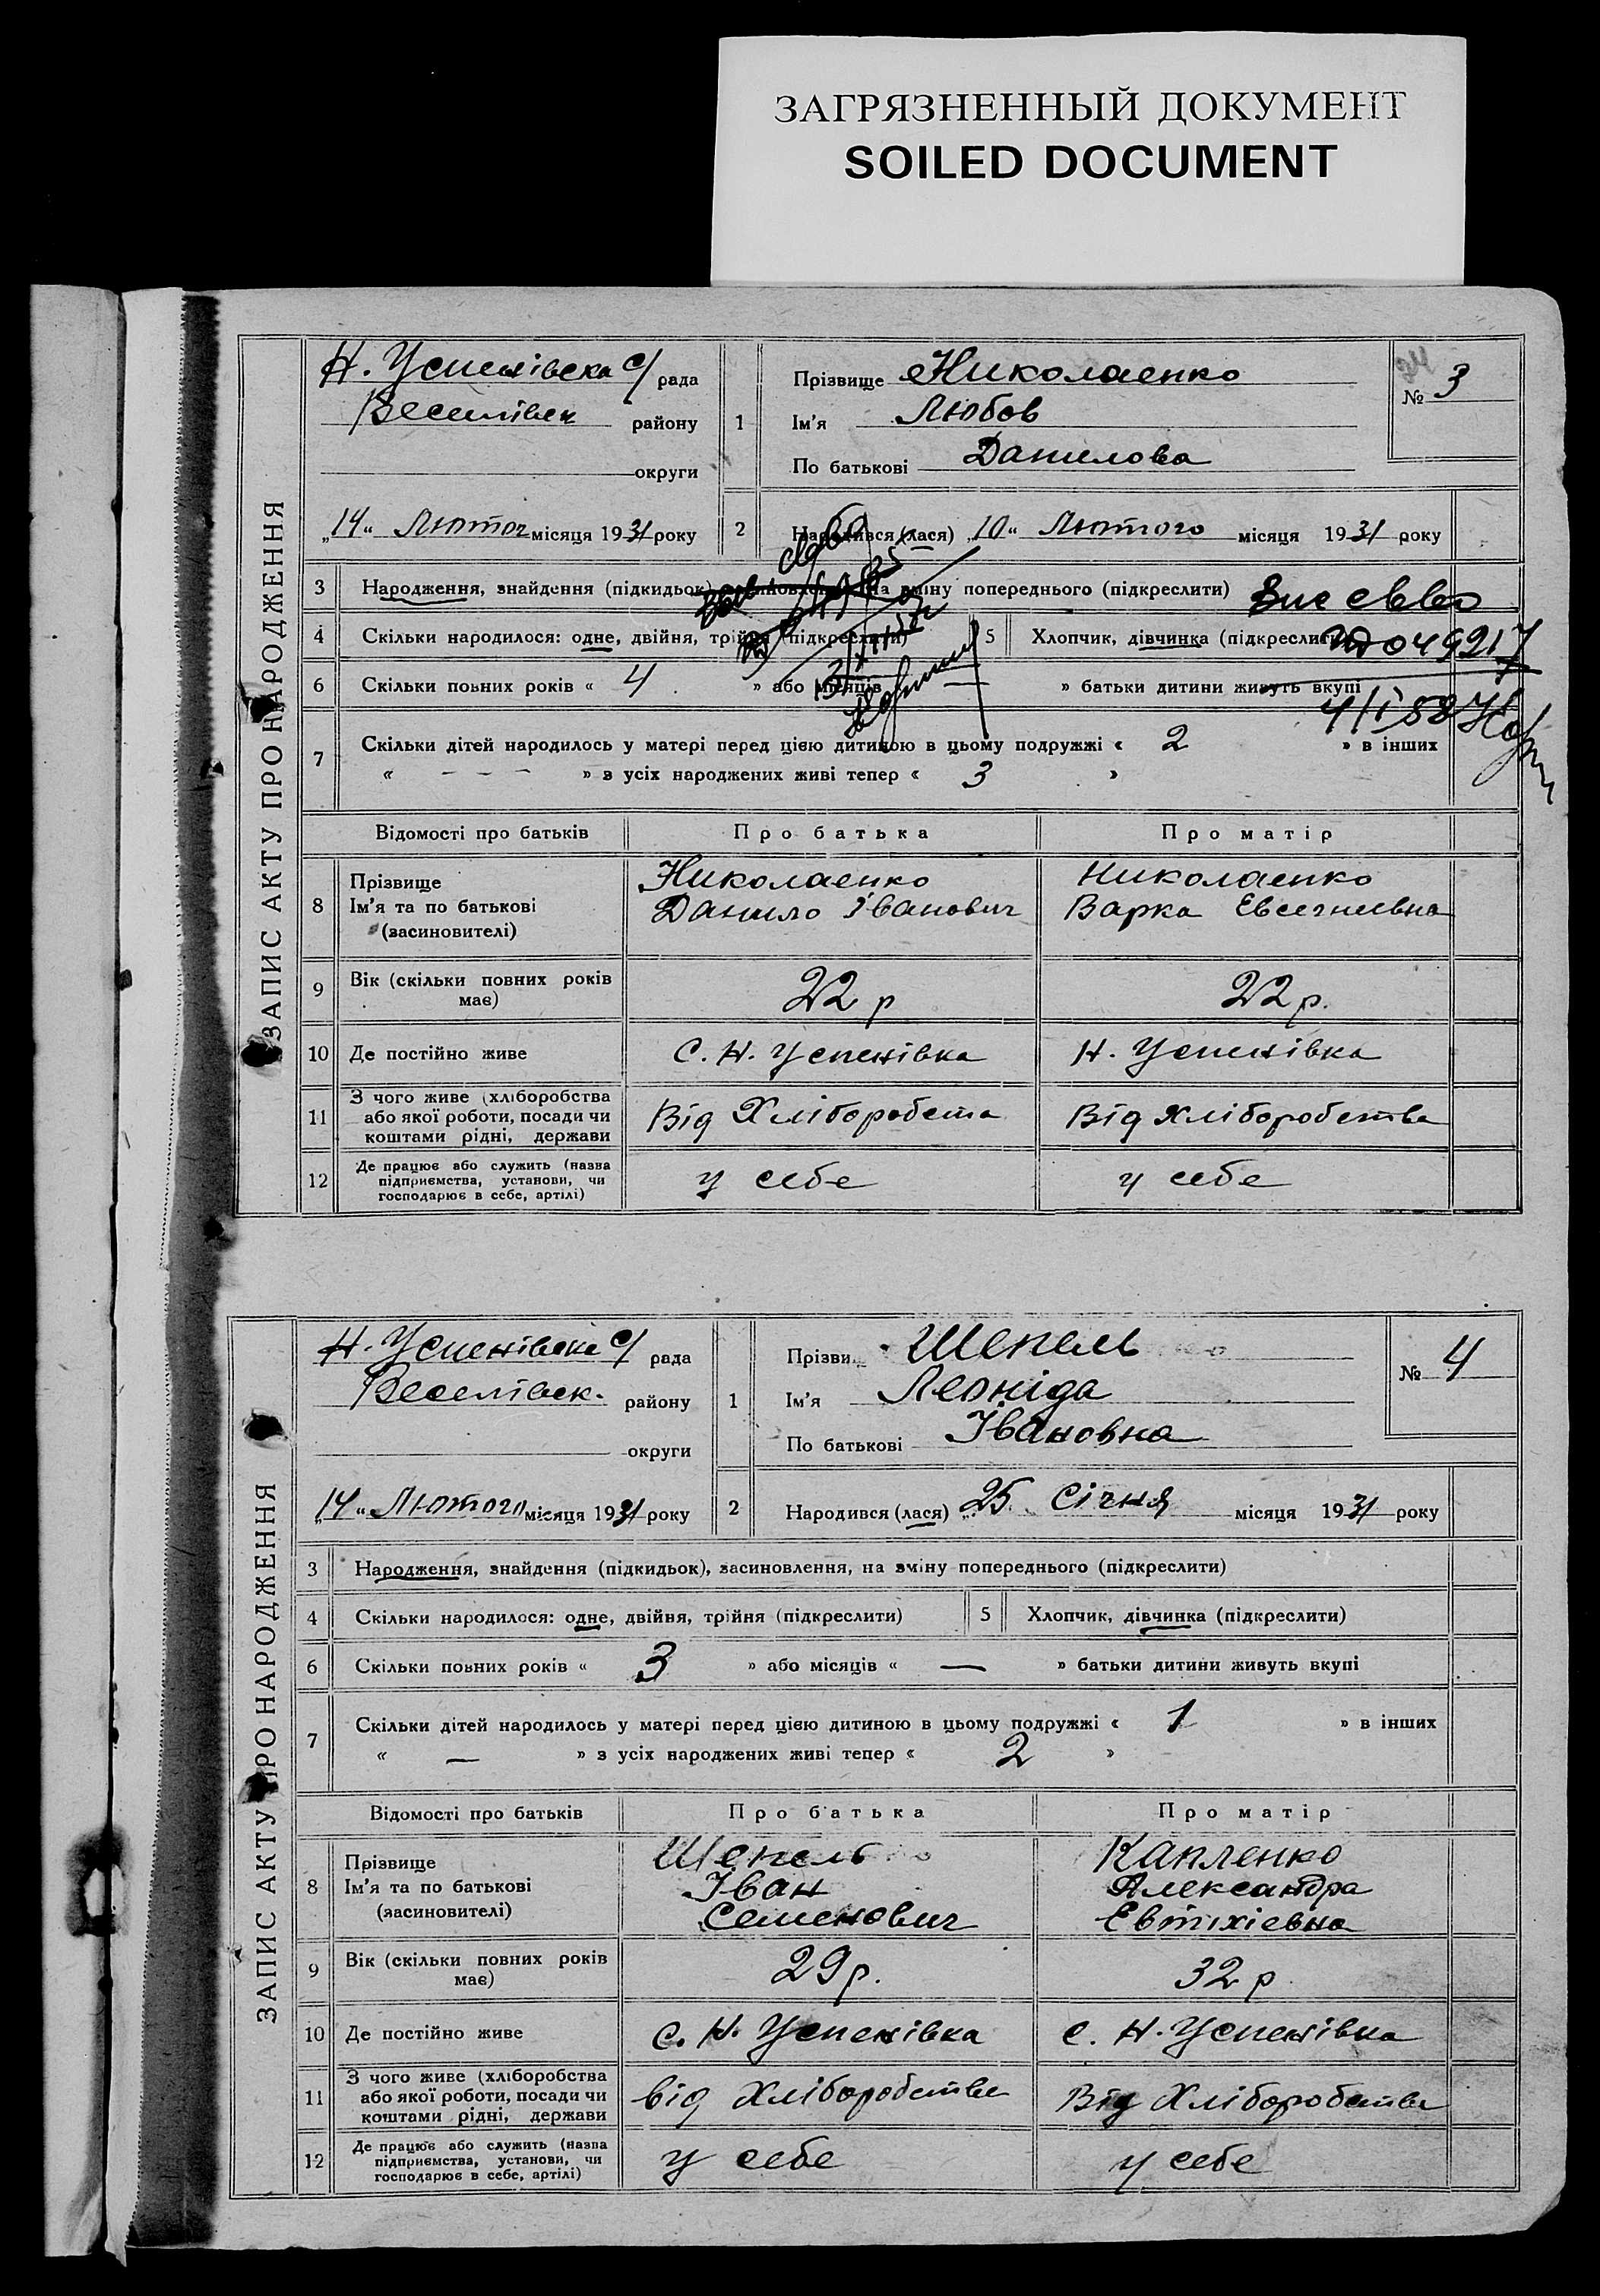 ЗАГРЯЗНЕННЫЙ ДОКУМЕНТ
SOILED DOCUMENT
ЗАПИС АКТУ ПРО НАРОДЖЕННЯ
Н. Успенівска с/ рада
Веселівск району
округи
1
Прізвище Николаенко
Ім'я Любов
По батькові Данилова
№ 3
„14“ Лютог місяця 1931 року
2 Народився (лася) „10“ Лютого місяця 1931 року
3 Народження, знайдення (підкидьок), на зміну попереднього (підкреслити)
4 Скільки народилося: одне, двійня, трійня (підкреслити)
5 Хлопчик, дівчинка (підкреслити)
049217
6 Скільки повних років « 4 » або місяців — » батьки дитини живуть вкупі
4/I 58
7 Скільки дітей народилось у матері перед цією дитиною в цьому подружжі « 2 » в інших
« - - - » з усіх народжених живі тепер « 3 »
Відомості про батьків Про батька Про матір
8 Прізвище Николаенко Николаенко
Ім'я та по батькові Данило Іванович Варка
(засиновителі)
9 Вік (скільки повних років має) 22 р 22 р.
10 Де постійно живе С. Н. Успенівка Н. Успенівка
11 З чого живе (хліборобства
або якої роботи, посади чи Від Хліборобста Від хліборобства
коштами рідні, держави
12 Де працює або служить (назва
підприємства, установи, чи у себе у себе
господарює в себе, артілі)
ЗАПИС АКТУ ПРО НАРОДЖЕННЯ
Н. Успенівска с/ рада
Веселівск. району
округи
1
Прізви Шепель
Ім'я Леоніда
По батькові Івановна
№ 4
„14“ Лютого місяця 1931 року
2 Народився (лася) „25 Січня місяця 1931 року
3 Народження, знайдення (підкидьок), засиновлення, на зміну попереднього (підкреслити)
4 Скільки народилося: одне, двійня, трійня (підкреслити)
5 Хлопчик, дівчинка (підкреслити)
6 Скільки повних років « 3 » або місяців « — » батьки дитини живуть вкупі
7 Скільки дітей народилось у матері перед цією дитиною в цьому подружжі « 1 » в інших
« — » з усіх народжених живі тепер « 2 »
Відомості про батьків Про батька Про матір
8 Прізвище Шепель Капленко
Ім'я та по батькові Іван Александра
(засиновителі) Семенович Евтихіевна
9 Вік (скільки повних років має) 29 р. 32 р
10 Де постійно живе с. Н. Успенівка с. Н. Успенівка
11 З чого живе (хліборобства
або якої роботи, посади чи від Хліборобства Від Хліборобства
коштами рідні, держави
12 Де працює або служить (назва
підприємства, установи, чи у себе у себе
господарює в себе, артілі)